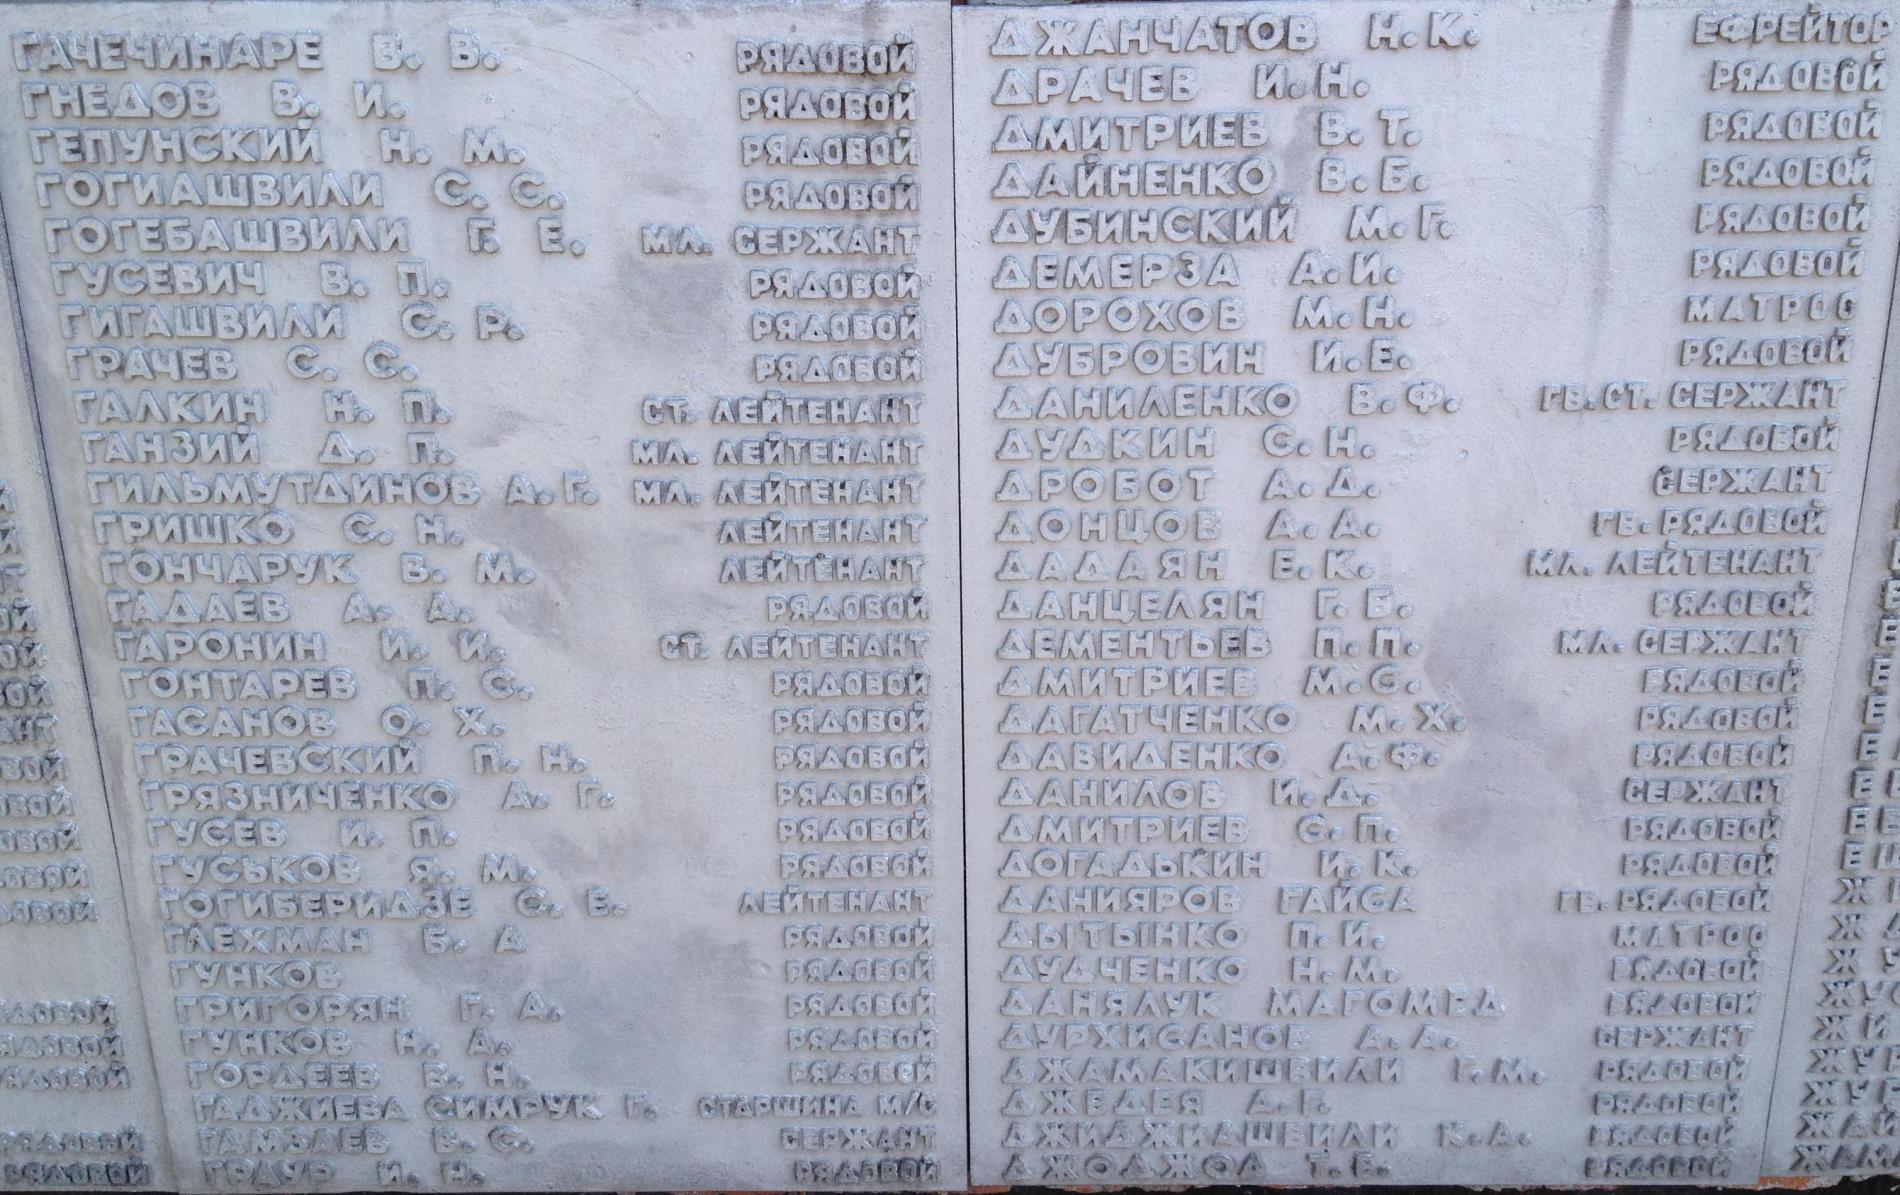 ГАЧЕЧИНАРЕ В. В. РЯДОВОЙ
ГНЕДОВ В. И. РЯДОВОЙ
ГЕПУНСКИЙ Н. М. РЯДОВОЙ
ГОГИАШВИЛИ С. С. РЯДОВОЙ
ГОГЕБАШВИЛИ Г. Е. МЛ. СЕРЖАНТ
ГУСЕВИЧ В. П. РЯДОВОЙ
ГИГАШВИЛИ С. Р. РЯДОВОЙ
ГРАЧЕВ С. С. РЯДОВОЙ
ГАЛКИН Н. П. СТ. ЛЕЙТЕНАНТ
ГАНЗИЙ Д. П. МЛ. ЛЕЙТЕНАНТ
ГИЛЬМУТДИНОВ А. Г. МЛ. ЛЕЙТЕНАНТ
ГРИШКО С. Н. ЛЕЙТЕНАНТ
ГОНЧАРУК В. М. ЛЕЙТЕНАНТ
ГАДАЕВ А. А. РЯДОВОЙ
ГАРОНИН И. И. СТ. ЛЕЙТЕНАНТ
ГОНТАРЕВ П. С. РЯДОВОЙ
ГАСАНОВ О. Х. РЯДОВОЙ
ГРАЧЕВСКИЙ П. Н. РЯДОВОЙ
ГРЯЗНИЧЕНКО А. Г. РЯДОВОЙ
ГУСЕВ И. П. РЯДОВОЙ
ГУСЬКОВ Я. М. РЯДОВОЙ
ГОГИБЕРИДЗЕ С. Е. ЛЕЙТЕНАНТ
ГЛЕХМАН Б. А РЯДОВОЙ
ГУНКОВ РЯДОВОЙ
ГРИГОРЯН Г. А. РЯДОВОЙ
ГУНКОВ Н. А. РЯДОВОЙ
ГОРДЕЕВ В. Н. РЯДОВОЙ
ГАДЖИЕВА СИМРУК Г. СТАРШИНА М/С
ГАМЗАЕВ В. С. СЕРЖАНТ
ГРАУР И. Н. РЯДОВОЙ
ДЖАНЧАТОВ Н. К. ЕФРЕЙТОР
ДРАЧЕВ И. Н. РЯДОВОЙ
ДМИТРИЕВ В. Т. РЯДОВОЙ
ДАЙНЕНКО В. Б. РЯДОВОЙ
ДУБИНСКИЙ М. Г. РЯДОВОЙ
ДЕМЕРЗА А. И. РЯДОВОЙ
ДОРОХОВ М. Н. МАТРОС
ДУБРОВИН И. Е. РЯДОВОЙ
ДАНИЛЕНКО В. Ф. ГВ. СТ. СЕРЖАНТ
ДУДКИН С. Н. РЯДОВОЙ
ДРОБОТ А. Д. СЕРЖАНТ
ДОНЦОВ А. А. ГВ. РЯДОВОЙ
ДАДАЯН Е. К. МЛ. ЛЕЙТЕНАНТ
ДАНЦЕЛЯН Г. Б. РЯДОВОЙ
ДЕМЕНТЬЕВ П. П. МЛ. СЕРЖАНТ
ДМИТРИЕВ М. С. РЯДОВОЙ
ДАГАТЧЕНКО М. Х. РЯДОВОЙ
ДАВИДЕНКО А. Ф. РЯДОВОЙ
ДАНИЛОВ И. Д. СЕРЖАНТ
ДМИТРИЕВ С. П. РЯДОВОЙ
ДОГАДЬКИН И. К. РЯДОВОЙ
ДАНИЯРОВ ГАЙСА ГВ. РЯДОВОЙ
ДЫТЫНКО П. И. МАТРОС
ДУДЧЕНКО Н. М. РЯДОВОЙ
ДАНЯЛУК МАГОМЕД РЯДОВОЙ
ДУРХИСАНОВ А. А. СЕРЖАНТ
ДЖАМАКИШВИЛИ Г. М. РЯДОВОЙ
ДЖЕДЕЯ А. Г. РЯДОВОЙ
ДЖИДЖИАШВИЛИ К. А. РЯДОВОЙ
ДЖОДЖОА Т. Е. РЯДОВОЙ